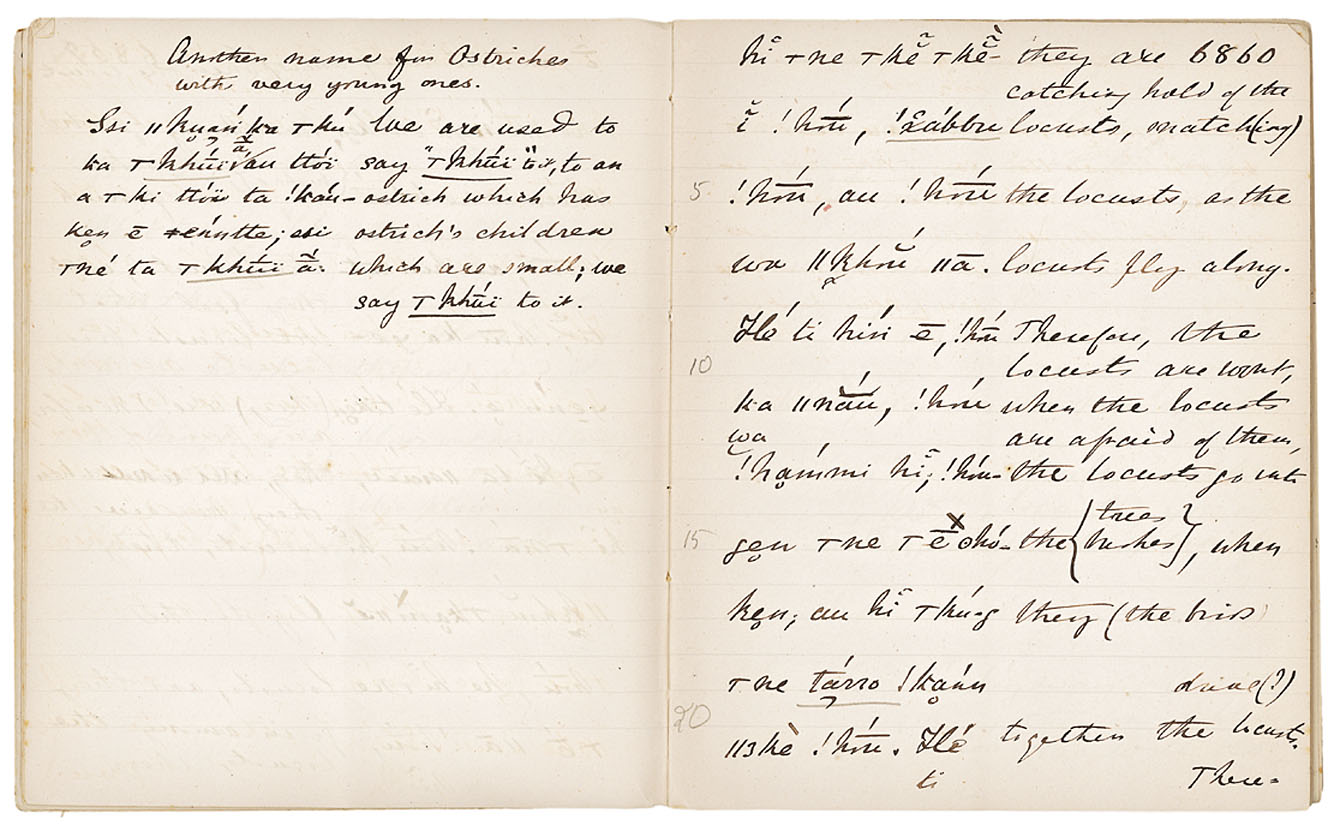 Another name for Ostriches
with very young ones.
Ssi ǁkuań ka ⊤kú We are used to
ka ⊤khúï ā̌ au ttóï say "⊤khúï" to it, to an
a ⊤ki ttóï ta !káu- ostrich which has
ken ē ≠eńńtte; ssi ostrich's children
⊤né ta ⊤khúï ā̌. which are small; we
say ⊤khúï to it.
hĭ ⊤ne ⊤khĕ̃ ⊤khĕ̃- they are 6860
catching hold of the
ĭ !hóū, locusts, snatch(ing)
5. !hóū, au !hóū the locusts, as the
wa ǁkhóū ǁā. locusts fly along.
Hé ti hiń ē, !hóū Therefore, the
10 locusts are wont,
ka ǁnāú, !hóū when the locusts
wa are afraid of them,
!haḿmi hĭ; !hóū- the locusts go into
trees
15 gen ⊤ne ⊤ē ʘhó- the {bushes}, when
ken; au hĭ ⊤kúï-g they (the birds)
⊤ne tárro !kaúń drive(?)
20
ǁɜkè !hóū. Hé together the locusts.
ti There=